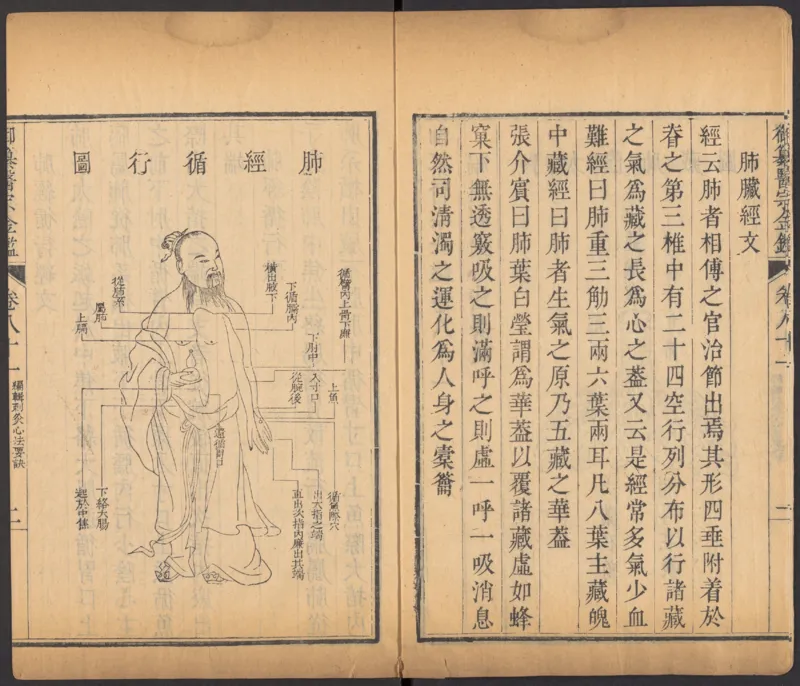 御纂醫宗金鑑
卷八十一
肺臟經文
經云肺者相傅之官治節出焉其形四垂附着於
脊之第三椎中有二十四空行列分布以行諸藏
之氣爲藏之長爲心之葢又云是經常多氣少血
難經曰肺重三觔三兩六葉兩耳凡八葉主藏魄
中藏經曰肺者生氣之原乃五藏之華葢
張介賓曰肺葉白瑩謂爲華葢以覆諸藏虛如蜂
窠下無透竅吸之則滿呼之則虛一呼一吸消息
自然司清濁之運化爲人身之槖籥
肺經循行圖
循臂內上骨下廉
下循臑內
橫出腋下
下肘中
入寸口
上魚
從腕後
循魚際穴
出大指之端
直出次指內廉出其端
還循胃口
從肺系
屬肺
上膈
下絡大腸
起於中焦
御纂醫宗金鑑
卷八十一
編輯刺灸心法要訣
二